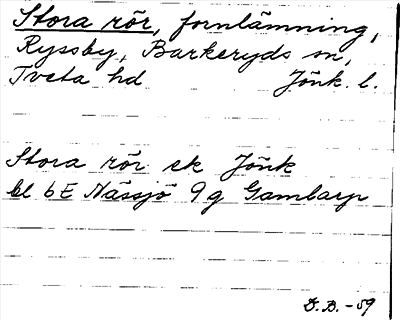 Stora rör, fornlämning,
Ryssby, Barkeryds sn,
Tveta hd Jönk. l.
Stora rör ek Jönk
bl 6E Nässjö 9g Gamlarp
D.B. -59